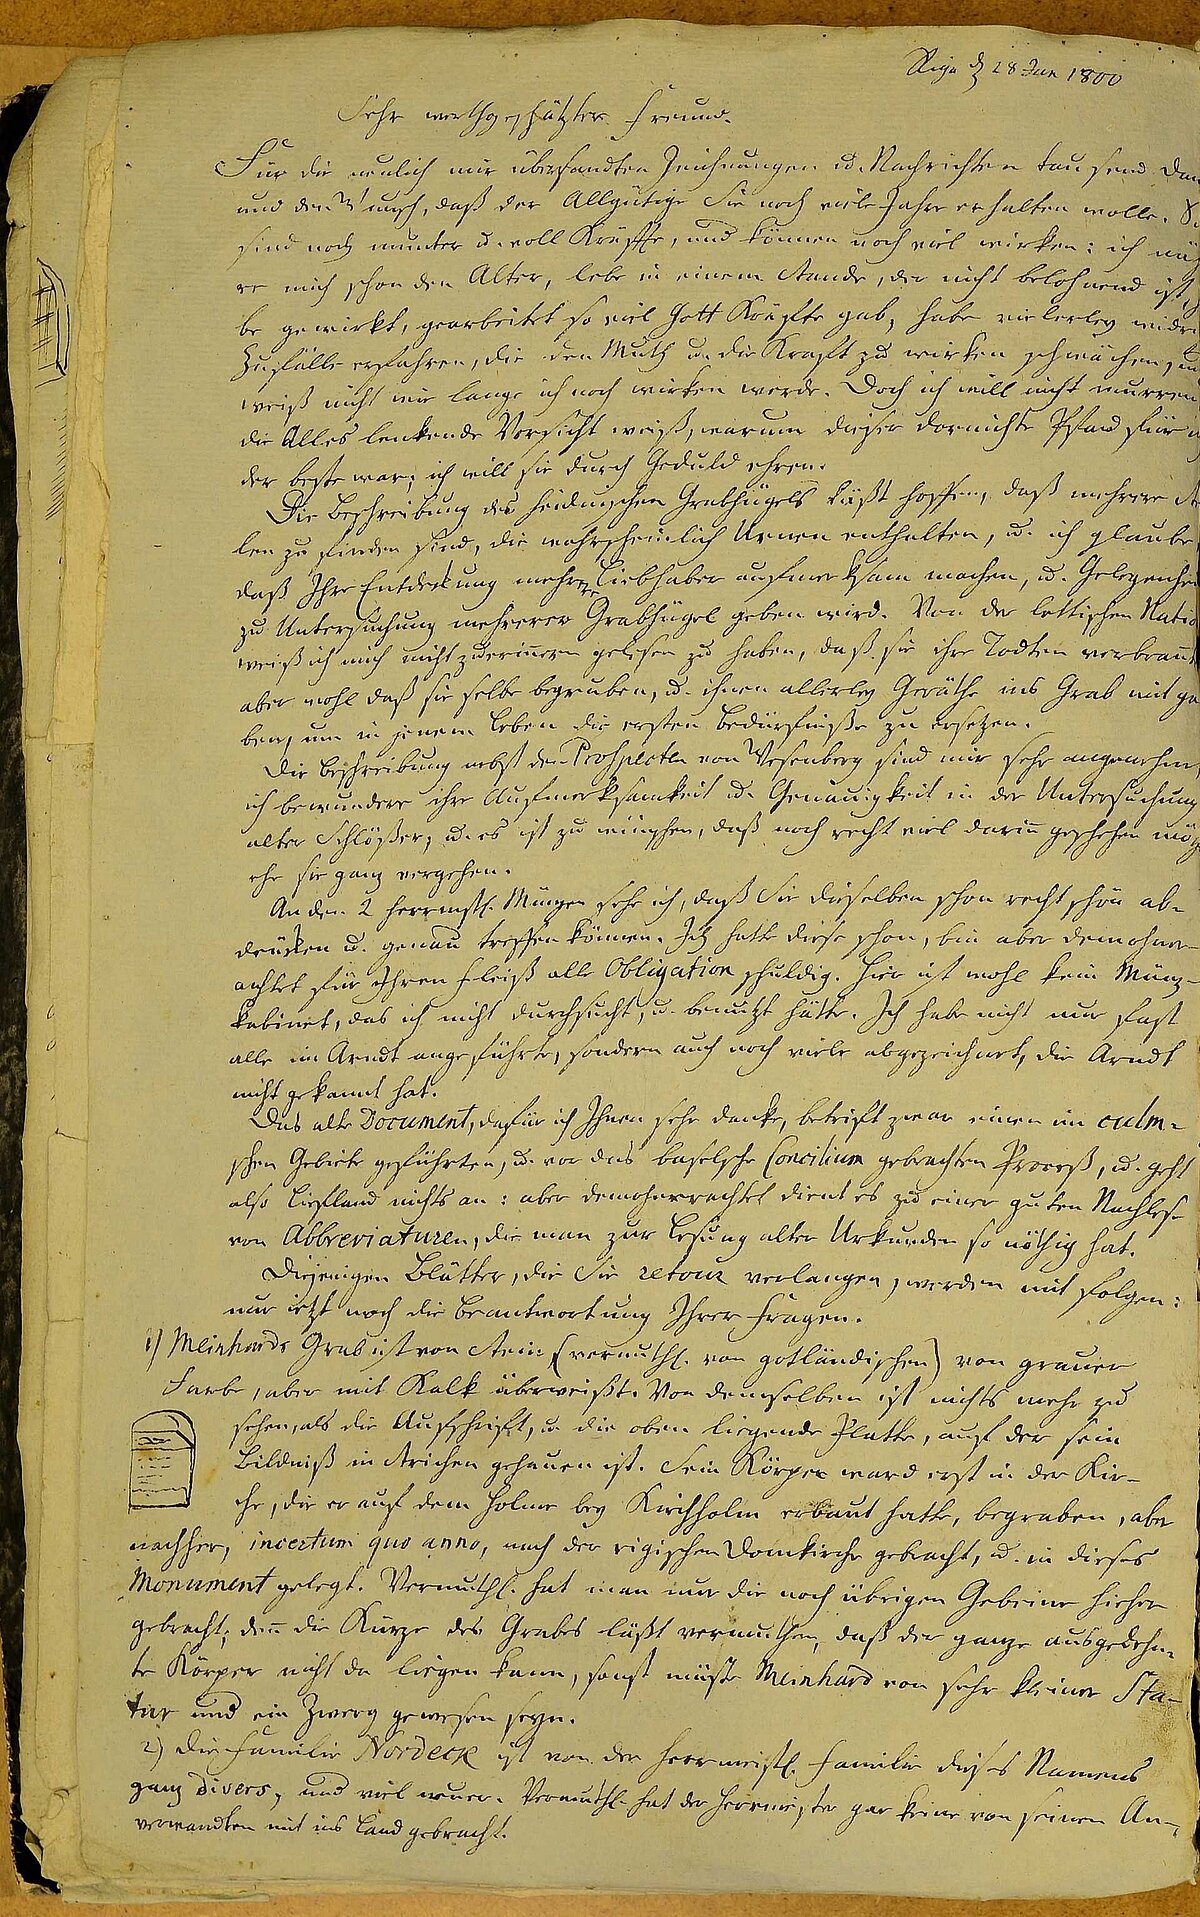 Riga d 28 Jan 1800
Sehr werthgeschätzter Freund.
Für die neulich mir übersandten Zeichnungen u. Nachrichten tausend Dan
und den Wunsch, daß der Allgütige Sie noch viele Jahre erhalten wolle. Si
sind noch munter u. voll Kräffte, und können noch viel wirken: ich nä
re mich schon dem Alter, lebe in einem Stande, der nicht belohnend ist,
be gewirkt, gearbeitet so viel Gott Kräffte gab, habe vielerley widri
Zufälle erfahren, die den Muth u. die Krafft zu wirken schwächen, u
weiß nicht wie lange ich noch wirken werde. Doch ich will nicht murren
die Alles lenkende Vorsicht weiß, warum dieser dornichte Pfad für
der beste war; ich will sie durch Geduld ehren.
Die Beschreibung des heidnischen Grabhügels läßt hoffen, daß mehrere Ste
len zu finden sind, die wahrscheinlich Urnen enthalten, u. ich glaube
daß Ihre Entdeckung mehrere Liebhaber aufmerksam machen, u. Gelegenhei
zu Untersuchung mehrerer Grabhügel geben wird. Von der lettischen Natio
weiß ich mich nicht zuerinnern gelesen zu haben, daß sie ihre Todten verbrant
aber wohl daß sie selbe begruben, u. ihnen allerley Geräthe ins Grab mit ga
ben, um in jenem Leben die ersten Bedürfniße zu ersetzen.
Die Beschreibung nebst den Prospecten von Wesenberg sind mir sehr angenehm
ich bewundere ihre Aufmerksamkeit u. Genauigkeit in der Untersuchung
alter Schlößer, u. es ist zu wünschen, daß noch recht viel darin geschehen mög
ehe sie ganz vergehen.
An den 2 herrmstl. Münzen sehe ich, daß Sie dieselben schon recht schön ab-
drücken u. genau treffen können. Ich hatte diese schon, bin aber demohner-
achtet für Ihren Fleiß alle Obligation schuldig. Hier ist wohl kein Münz-
kabinet, das ich nicht durchsucht, u. benutzt hätte. Ich habe nicht nur fast
alle im Arndt angeführte, sondern auch noch viele abgezeichnet, die Arndt
nicht gekannt hat.
Das alte Document, dafür ich Ihnen sehr danke, betrift zwar einen im culm-
schen Gebiete geführten, u. vor das baselsche Concilium gebrachten Proceß, u. geht
also Liefland nichts an: aber demohnerachtet dient es zu einer guten Nachlese
von Abbreviaturen, die man zur Lesung alter Urkunden so nöthig hat.
Diejenigen Blätter, die Sie retour verlangen, werden mit folgen:
nur jetzt noch die Beantwortung Ihrer Fragen.
1) Meinhards Grab ist von Stein, (vermuthl. von gotländischen) von grauer
Farbe, aber mit Kalk überweißt. Von demselben ist nichts mehr zu
sehen, als die Aufschrift, u. die oben liegende Platte, auf der sein
Bildniß in Strichen gehauen ist. Sein Körper ward erst in der Kir-
che, die er auf dem Holme bey Kirchholm erbaut hatte, begraben, aber
nachher, incertum quo anno, nach der rigischen Domkirche gebracht, u. in dieses
Monument gelegt. Vermuthl. hat man nur die noch übrigen Gebeine hieher
gebracht; denn die Kürze des Grabes läßt vermuthen, daß der ganze ausgedehn-
te Körper nicht da liegen kann, sonst müßte Meinhard von sehr kleiner Sta-
tur und ein Zwerg gewesen seyn.
2) Die Familie Nordeck ist von der herrmeistl. Familie dieses Namens
ganz divers, und viel neuer. Vermuthl. hat der Herrmeister gar keine von seinen An-
verwandten mit ins Land gebracht.